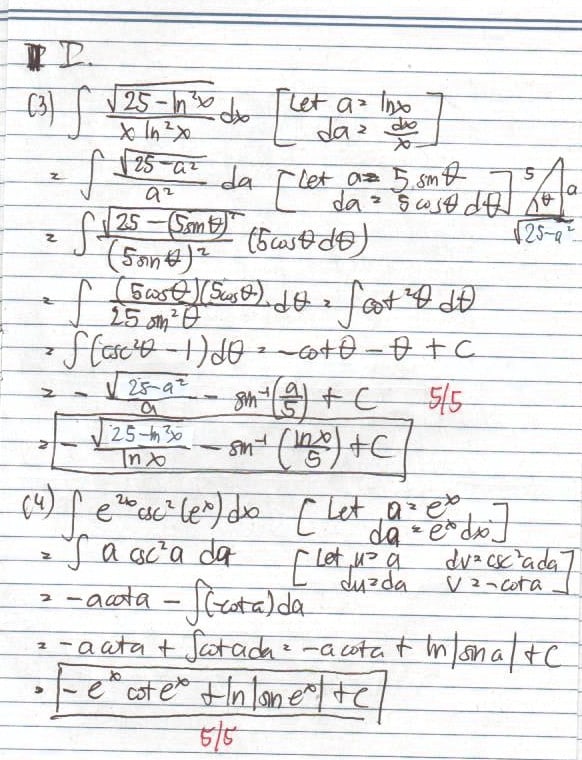 I.
(3) ∫ √(25 - ln²x) / (x ln²x) dx [Let a = lnx
da = dx/x]
= ∫ √(25 - a²) / a² da [Let a = 5 sinθ
da = 5 cosθ dθ] 5 a θ √(25-a²)
= ∫ √(25 - (5sinθ)²) / (5sinθ)² (5cosθ dθ)
= ∫ (5cosθ)(5cosθ) / (25 sin²θ) dθ = ∫ cot²θ dθ
= ∫ (csc²θ - 1) dθ = -cotθ - θ + C
= - √(25-a²) / a - sin⁻¹(a/5) + C 5/5
= - √(25-ln²x) / ln x - sin⁻¹(lnx/5) + C
(4) ∫ e²ˣ csc²(eˣ) dx [Let a = eˣ
da = eˣ dx]
= ∫ a csc²a da [Let u = a dv = csc²a da
du = da v = -cot a]
= -a cot a - ∫(-cot a) da
= -a cot a + ∫cot a da = -a cot a + ln|sin a| + C
= -eˣ cot eˣ + ln|sin eˣ| + C
5/5